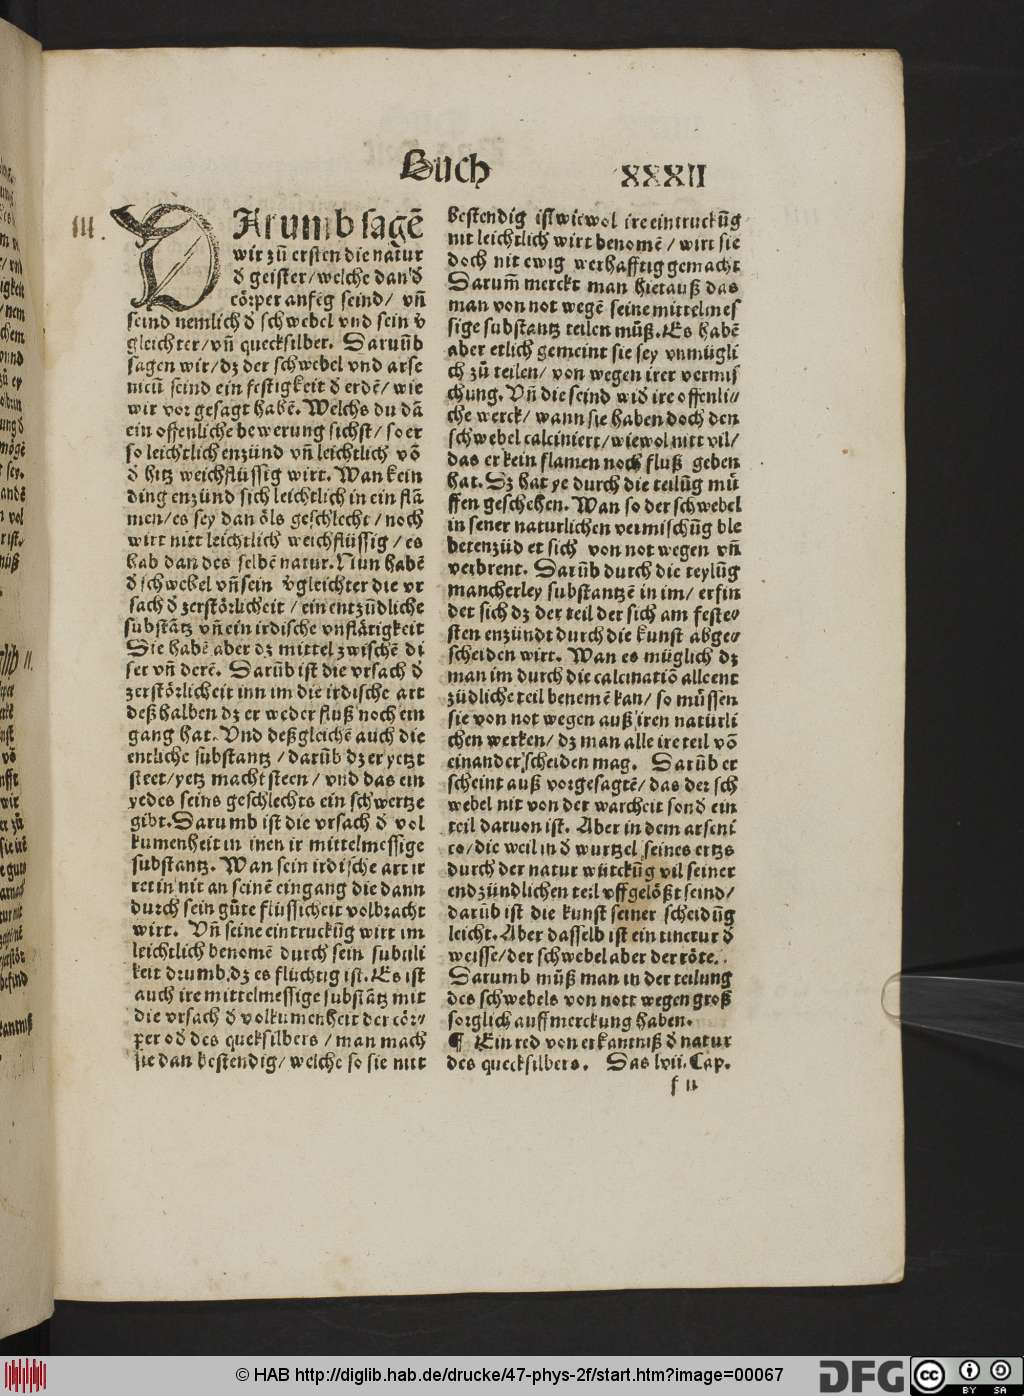 Buch XXXII
III.
DArumb sagē
wir zů ersten die natur
đ geister/welche dan đ
cörper anfeg seind/ vñ
seind nemlich đ schwebel vnd sein v̄
gleichter/vñ quecksilber. Daruūb
sagen wir/dz der schwebel vnd arse
nicū seind ein festigkeit đ erdē/wie
wir vor gesagt habē. Welchs du dā
ein offenliche bewerung sichst/so er
so leichtlich enzünd vñ leichtlich vō
đ hitz weichflüssig wirt. Wan kein
ding enzünd sich leichtlich in ein flā
men/es sey dan öls geschlecht/noch
wirt nitt leichtlich weichflüssig/es
hab dan des selbē natur. Nun habē
đ schwebel vñ sein v̄gleichter die vr
sach đ zerstörlicheit/ein entzūdliche
substātz vñ ein irdische vnflätigkeit
Sie habē aber dz mittel zwischē di
ser vñ derē. Darūb ist die vrsach đ
zerstörlicheit inn im die irdische art
deßhalben dz er weder fluß noch ein
gang hat. Vnd deßgleichē auch die
entliche substantz/darūb dz er yetzt
steet/yetz macht steen/vnd das ein
yedes seins geschlechts ein schwertze
gibt. Darumb ist die vrsach đ vol
kumenheit in inen ir mittelmessige
substantz. Wan sein irdische art ir
ret in nit an seinē eingang die dann
durch sein gůte flüssicheit volbracht
wirt. Vñ seine eintruckūg wirt im
leichtlich benomē durch sein subtili
keit drumb dz es flüchtig ist. Es ist
auch ire mittelmessige substātz mit
die vrsach đ volkumenheit der cör⸗
per od̄ des queksilbers/man mach
sie dan bestendig/welche so sie nitt
bestendig ist wiewol ire eintruckūg
nit leichtlich wirt benomē/wirt sie
doch nit ewig werhafftig gemacht
Darum̄ merckt man hierauß das
man von not wegē seine mittelmes
sige substantz teilen můß. Es habē
aber etlich gemeint sie sey vnmügli
ch zů teilen/von wegen irer vermis
chung. Vñ die seind wid̄ ire offenli⸗
che werck/wann sie haben doch den
schwebel calciniert/wiewol nitt vil/
das er kein flamen noch fluß geben
hat. Dz hat ye durch die teilūg mů
ssen geschehen. Wan so der schwebel
in sener naturlichen vermischūg ble
bet enzüd et sich von not wegen vñ
verbrent. Darūb durch die teylūg
mancherley substantzē in im/erfin
det sich dz der teil der sich am feste⸗
sten enzündt durch die kunst abge⸗
scheiden wirt. Wan es müglich dz
man im durch die calcinatiō alle ent
zůdliche teil benemē kan/so müssen
sie von not wegen auß iren naturli
chen werken/dz man alle ire teil vō
einander scheiden mag. Darūb er
scheint auß vorgesagtē/das der sch
webel nit von der warheit sond̄ ein
teil daruon ist. Aber in dem arseni
co/die weil in đ wurtzel seines ertzs
durch der natur würckūg vil seiner
endzündlichen teil vffgelößt seind/
darūb ist die kunst seiner scheidūg
leicht. Aber dasselb ist ein tinctur đ
weisse/der schwebel aber der röte.
Darumb můß man in der teilung
des schwebels von nott wegen groß
sorglich auffmerckung haben.
¶ Ein red von erkantniß đ natur
des quecksilbers. Das lvii. Cap.
f ii
© HAB http://diglib.hab.de/drucke/47-phys-2f/start.htm?image=00067
DFG
cc BY SA